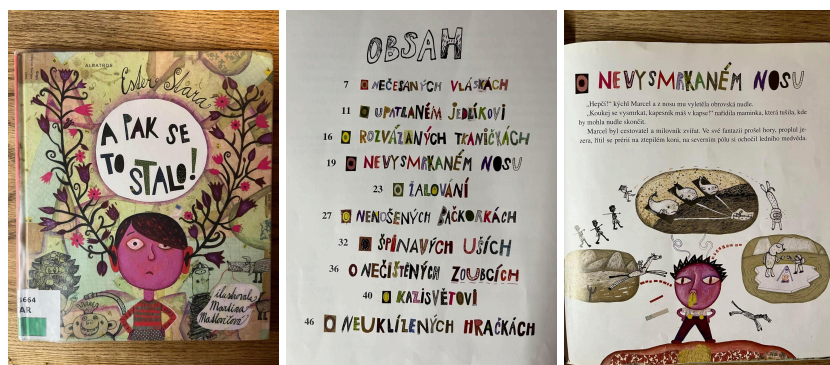 ALBATROS
Ester Stará
A PAK SE
TO
STALO!
ilustrovala
Martina
Matlovičová
1664
AR
OBSAH
7 O NEČESANÝCH VLÁSKÁCH
11 O UPATLANÉM JEDLÍKOVI
16 O ROZVÁZANÝCH TKANIČKÁCH
19 O NEVYSMRKANÉM NOSU
23 O ŽALOVÁNÍ
27 O NENOŠENÝCH BAČKORKÁCH
32 O ŠPINAVÝCH UŠÍCH
36 O NEČIŠTĚNÝCH ZOUBCÍCH
40 O KAZISVĚTOVI
46 O NEUKLÍZENÝCH HRAČKÁCH
O NEVYSMRKANÉM NOSU
„Hepčí!“ kýchl Marcel a z nosu mu vyletěla obrovská nudle.
„Koukej se vysmrkat, kapesník máš v kapse!“ nařídila maminka, která tušila, kde
by mohla nudle skončit.
Marcel byl cestovatel a milovník zvířat. Ve své fantazii prošel hory, proplul je-
zera, řítil se prérií na ztepilém koni, na severním pólu si ochočil ledního medvěda.